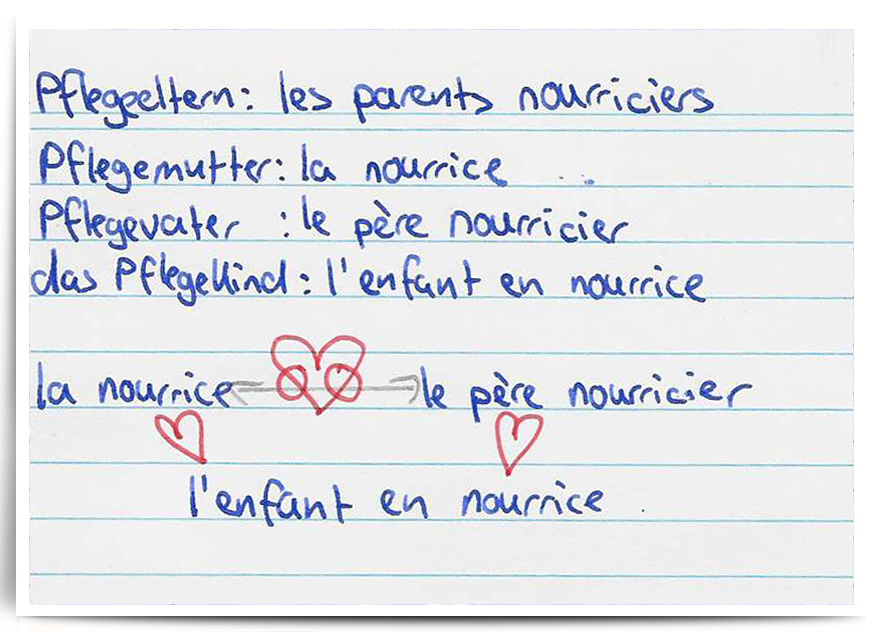 Pflegeeltern: les parents nourriciers
Pflegemutter: la nourrice
Pflegevater : le père nourricier
das Pflegekind: l'enfant en nourrice
la nourrice le père nourricier
l'enfant en nourrice